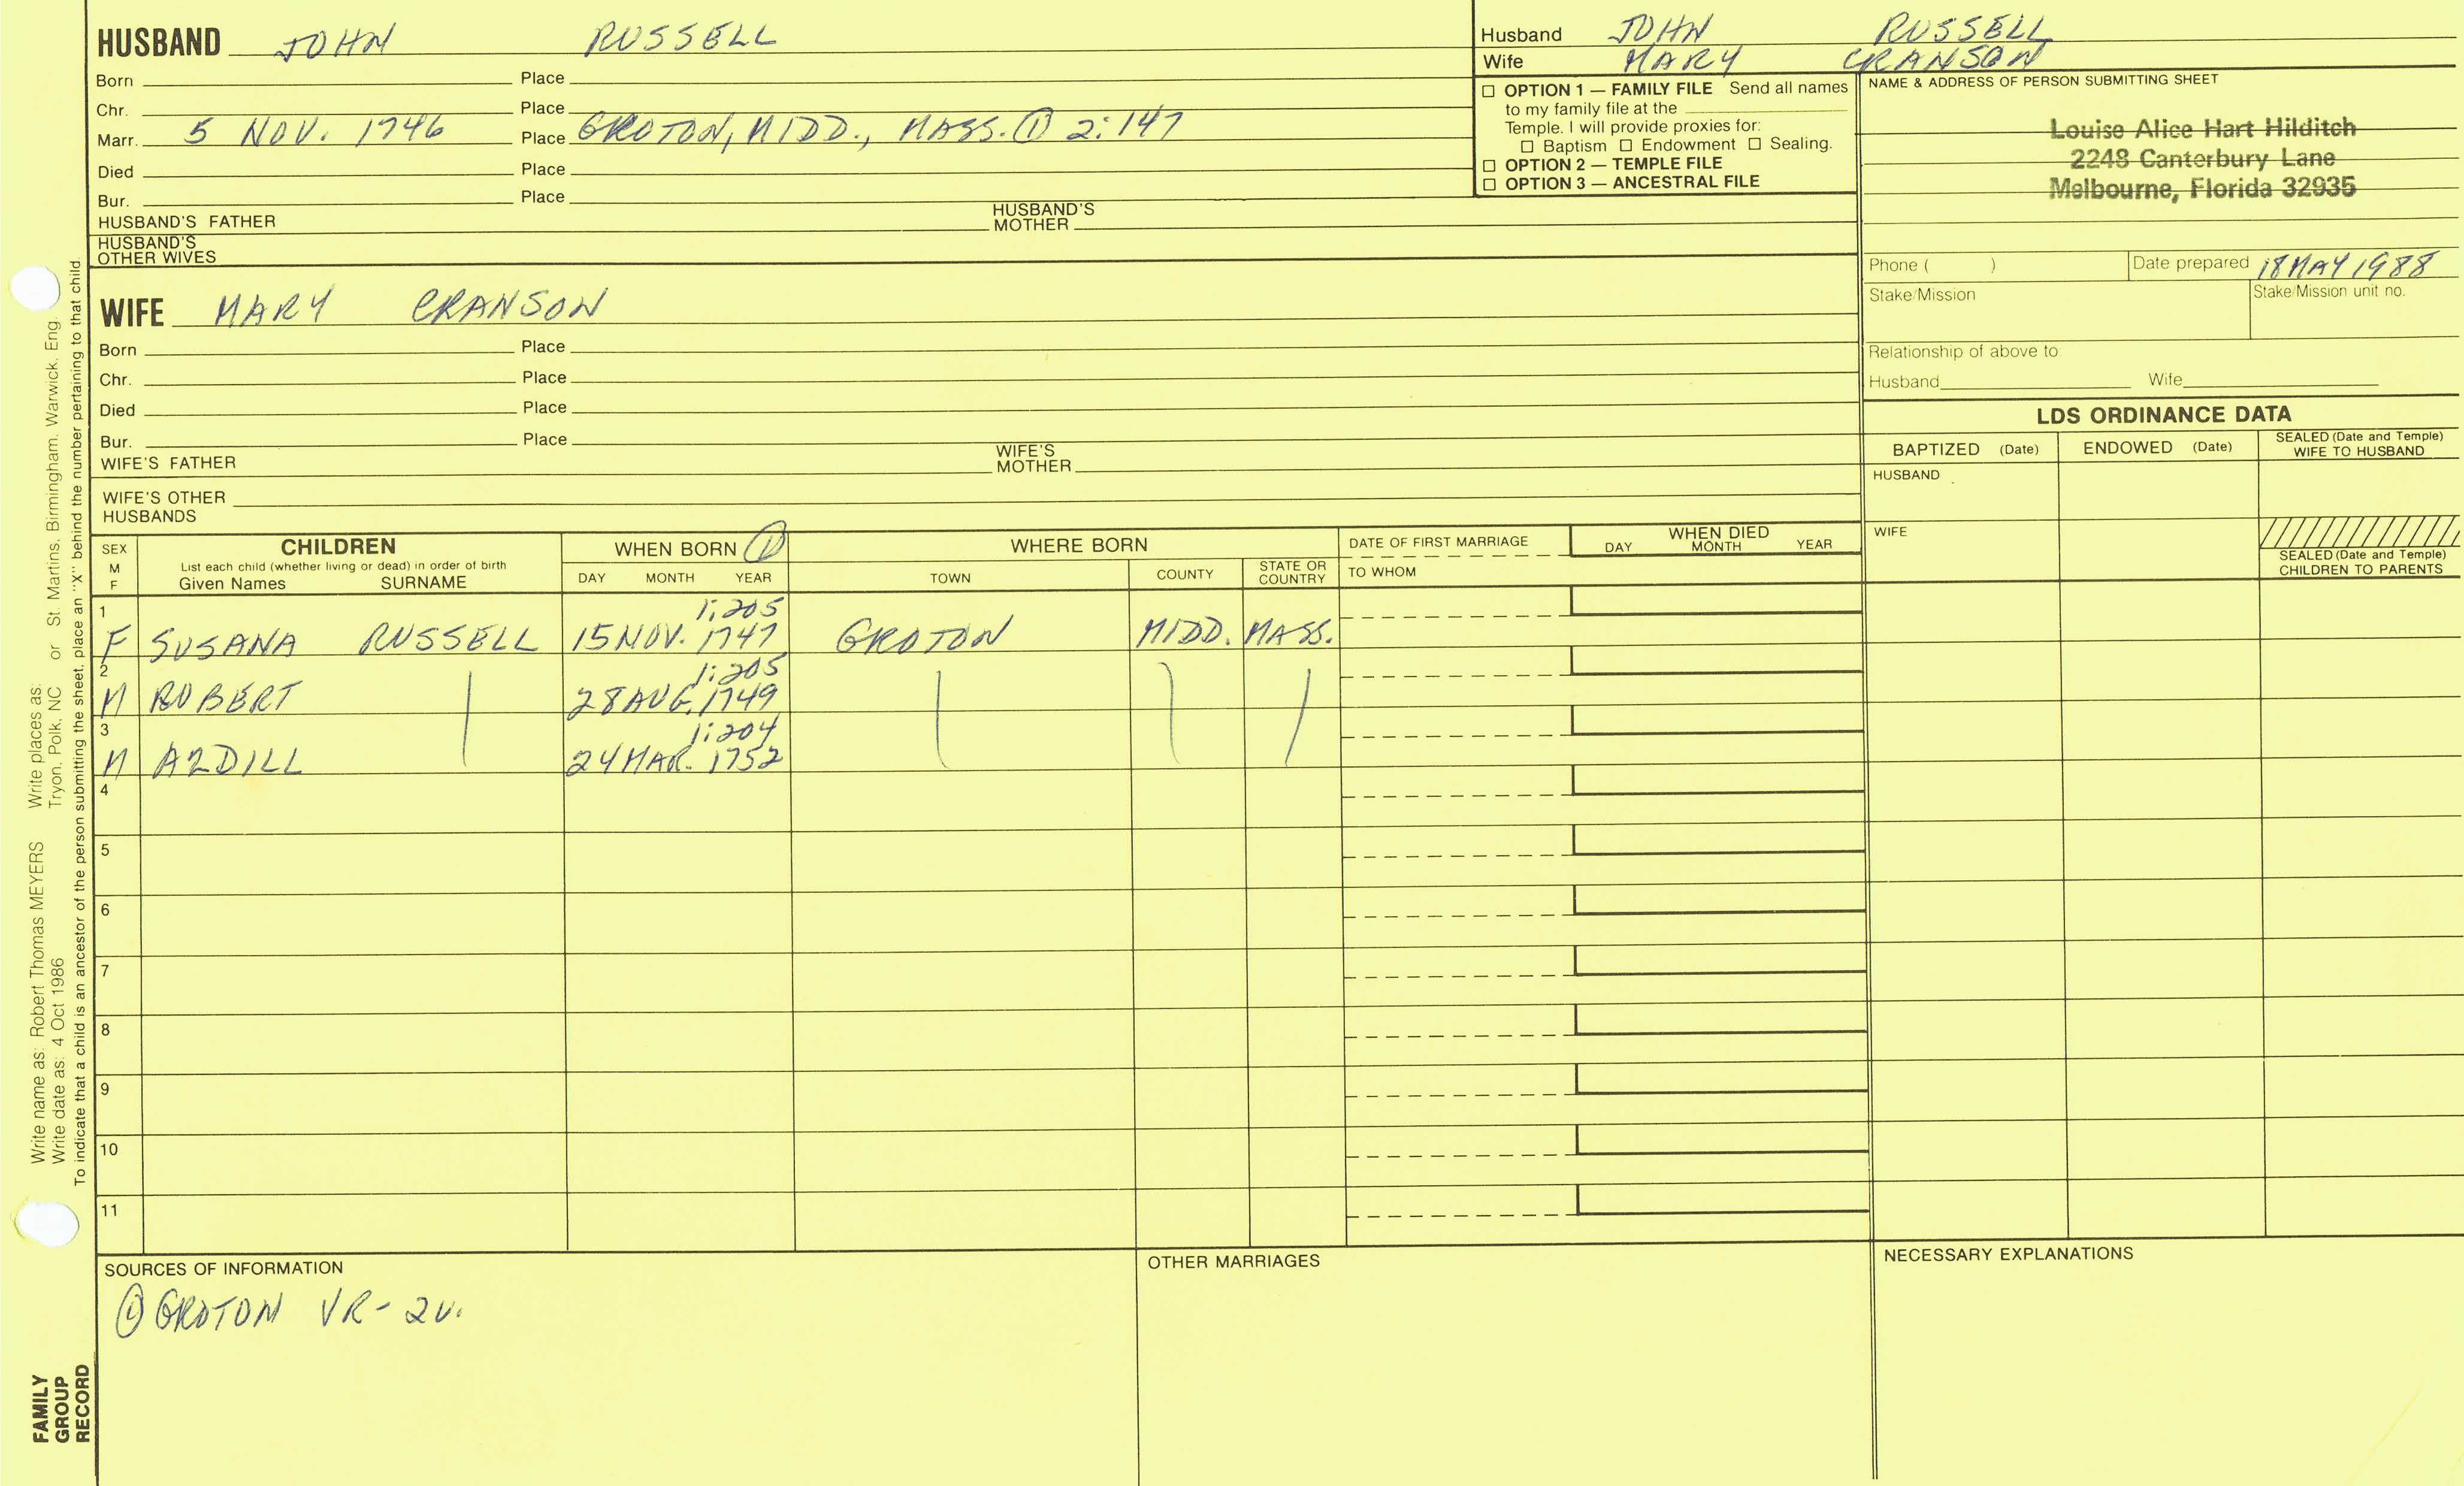 HUSBAND JOHN RUSSELL
Born Place
Chr. Place
Marr. 5 NOV. 1746 Place GROTON, MIDD., MASS. ① 2:147
Died Place
Bur. Place
HUSBAND'S FATHER HUSBAND'S MOTHER
HUSBAND'S OTHER WIVES
WIFE MARY CRANSON
Born Place
Chr. Place
Died Place
Bur. Place
WIFE'S FATHER WIFE'S MOTHER
WIFE'S OTHER HUSBANDS
Husband JOHN RUSSELL
Wife MARY CRANSON
OPTION 1 — FAMILY FILE Send all names
to my family file at the
Temple. I will provide proxies for:
Baptism Endowment Sealing.
OPTION 2 — TEMPLE FILE
OPTION 3 — ANCESTRAL FILE
NAME & ADDRESS OF PERSON SUBMITTING SHEET
Louise Alice Hart Hilditch
2248 Canterbury Lane
Melbourne, Florida 32935
Phone ( ) Date prepared 18 MAY 1988
Stake/Mission Stake/Mission unit no.
Relationship of above to
Husband Wife
LDS ORDINANCE DATA
BAPTIZED (Date) ENDOWED (Date) SEALED (Date and Temple) WIFE TO HUSBAND
HUSBAND
WIFE
SEALED (Date and Temple) CHILDREN TO PARENTS
SEX M F
CHILDREN
List each child (whether living or dead) in order of birth
Given Names SURNAME
WHEN BORN ①
DAY MONTH YEAR
WHERE BORN
TOWN COUNTY STATE OR COUNTRY
DATE OF FIRST MARRIAGE
TO WHOM
WHEN DIED
DAY MONTH YEAR
1 1:205
F SUSANA RUSSELL 15 NOV. 1747 GROTON MIDD. MASS.
2 1:205
M ROBERT 28 AUG. 1749
3 1:204
M AZDILL 24 MAR. 1752
4
5
6
7
8
9
10
11
SOURCES OF INFORMATION
① GROTON VR- 2V.
OTHER MARRIAGES
NECESSARY EXPLANATIONS
Write name as: Robert Thomas MEYERS Write places as:
Write date as: 4 Oct 1986 Tryon, Polk, NC or St. Martins, Birmingham, Warwick, Eng.
To indicate that a child is an ancestor of the person submitting the sheet, place an "X" behind the number pertaining to that child.
FAMILY
GROUP
RECORD